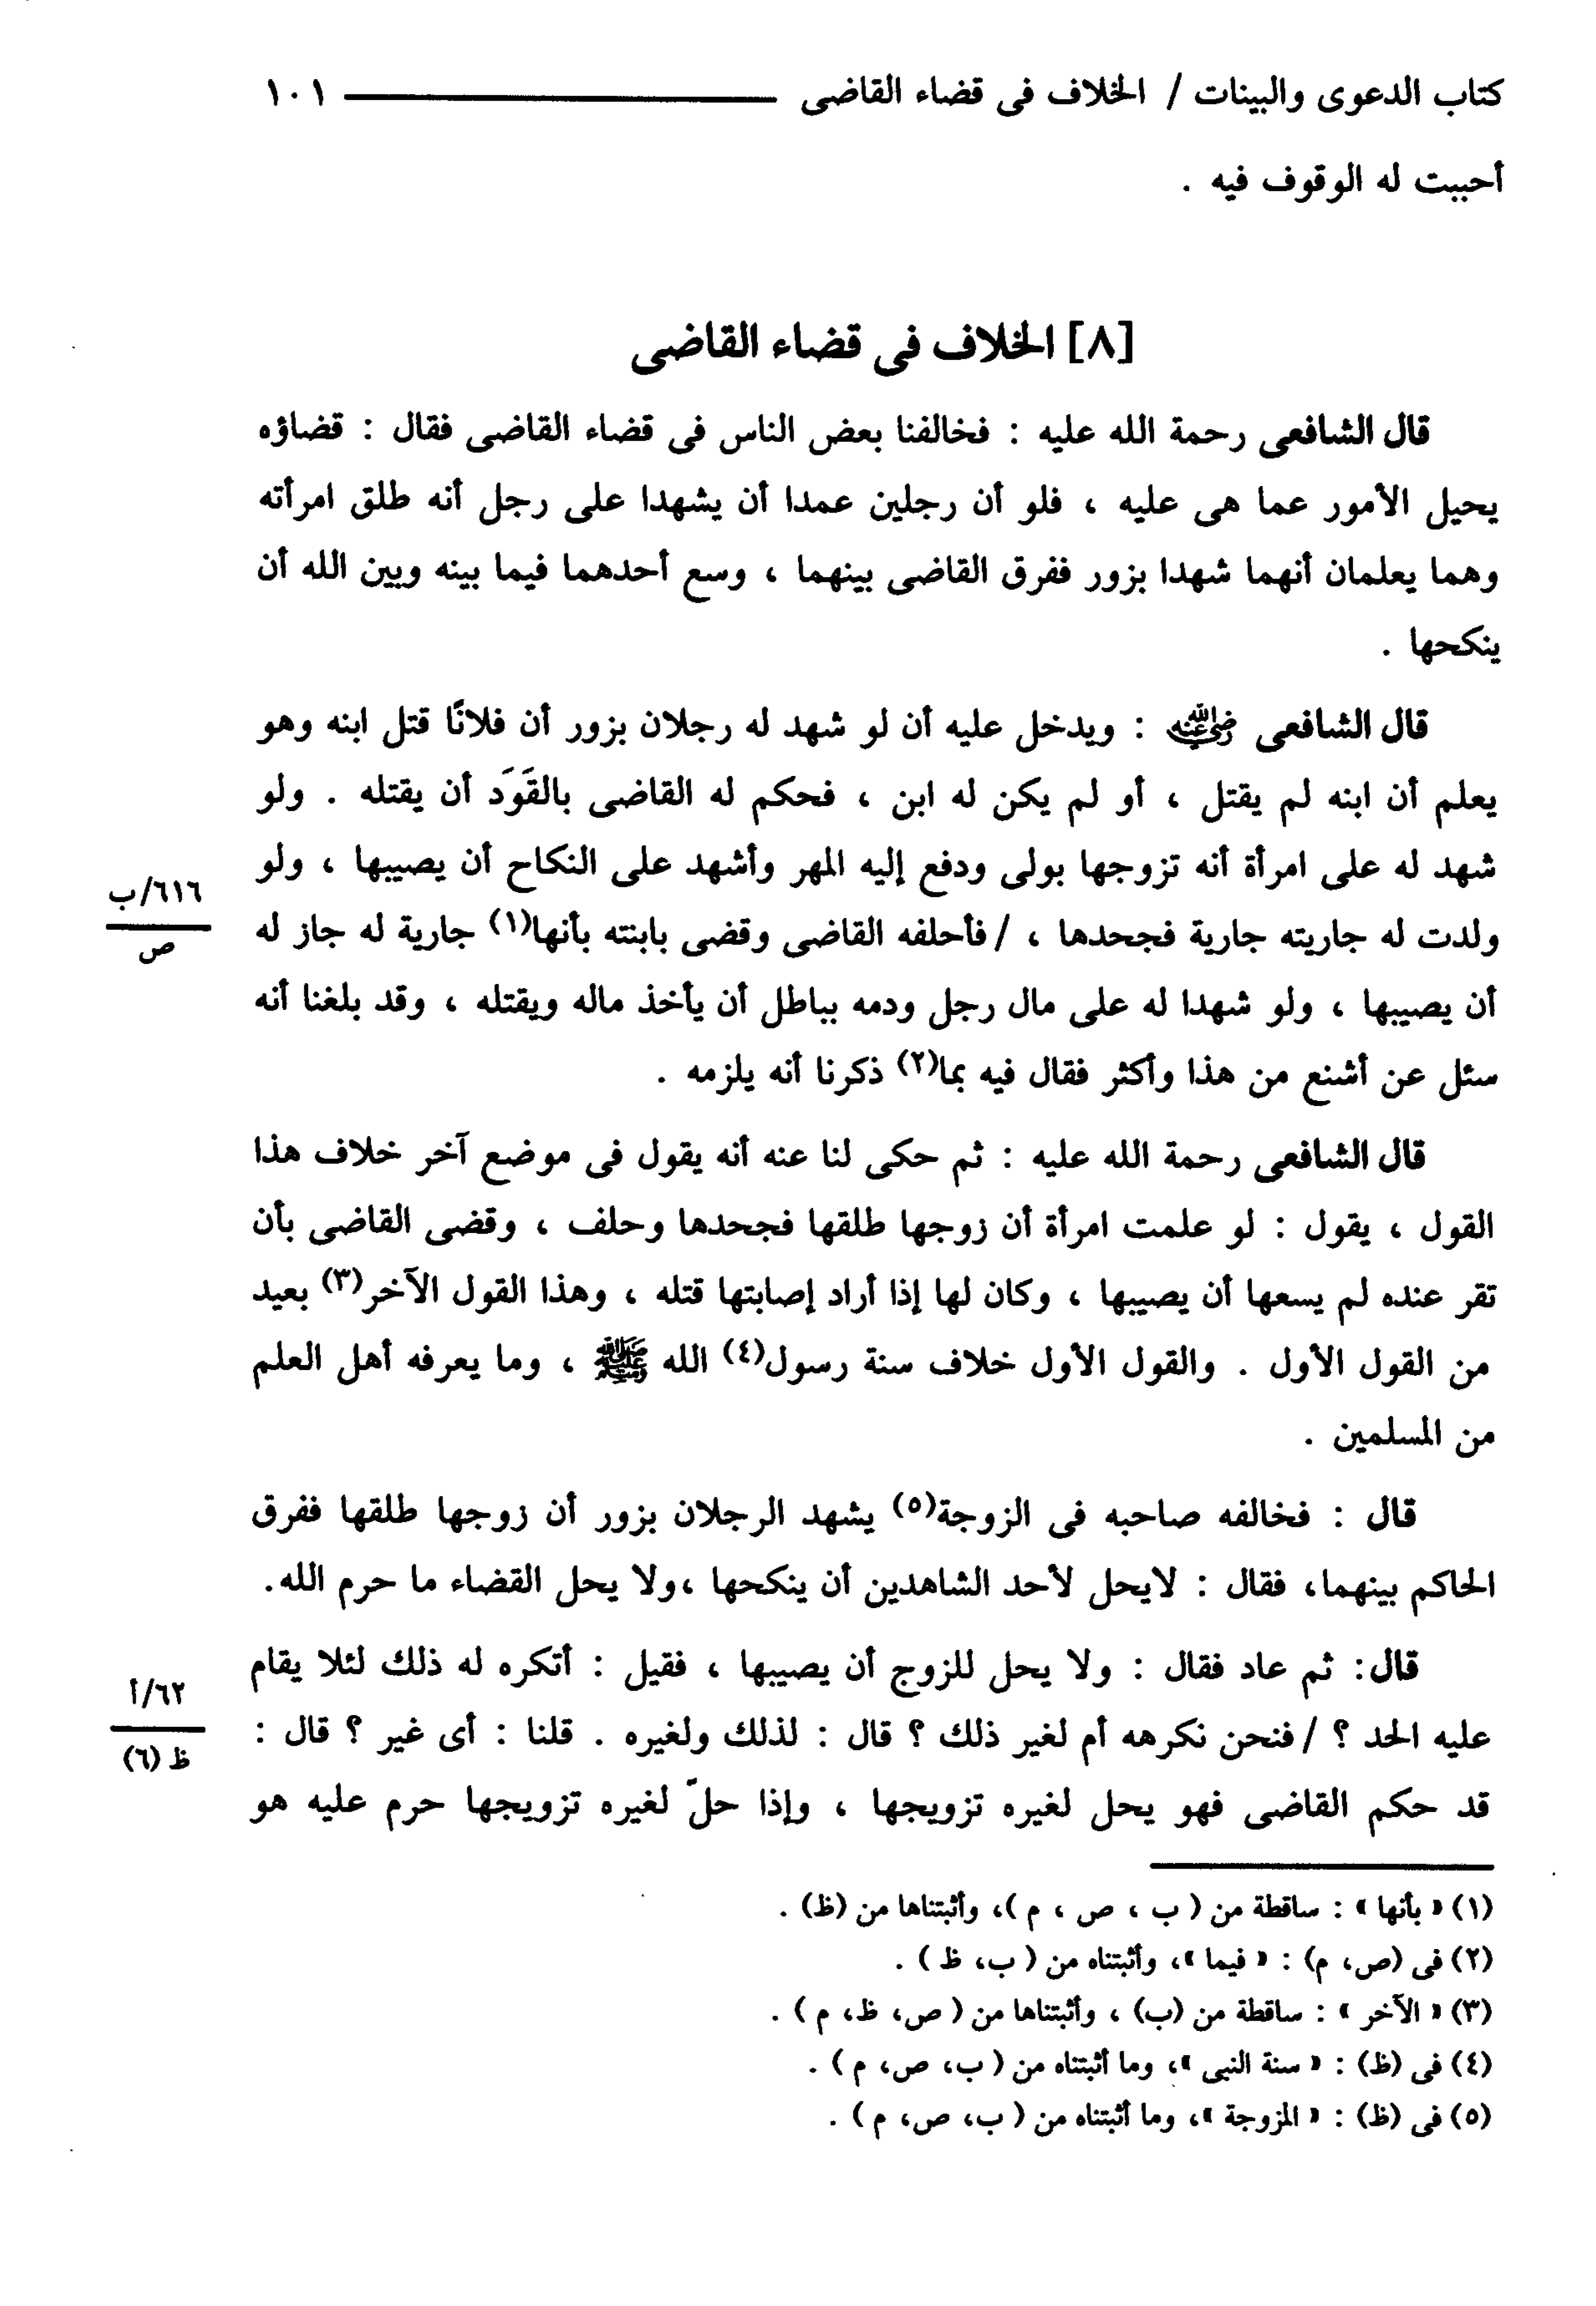 كتاب الدعوى والبينات / الخلاف فى قضاء القاضى ١٠١
أحببت له الوقوف فيه .
[٨] الخلاف فى قضاء القاضى
قال الشافعى رحمة الله عليه : فخالفنا بعض الناس فى قضاء القاضى فقال : قضاؤه
يحيل الأمور عما هى عليه ، فلو أن رجلين عمدا أن يشهدا على رجل أنه طلق امرأته
وهما يعلمان أنهما شهدا بزور ففرق القاضى بينهما ، وسع أحدهما فيما بينه وبين الله أن
ينكحها .
قال الشافعى رضي الله عنه : ويدخل عليه أن لو شهد له رجلان بزور أن فلانًا قتل ابنه وهو
يعلم أن ابنه لم يقتل ، أو لم يكن له ابن ، فحكم له القاضى بالقَوَد أن يقتله . ولو
شهد له على امرأة أنه تزوجها بولى ودفع إليه المهر وأشهد على النكاح أن يصيبها ، ولو
ولدت له جاريته جارية فجحدها ، / فأحلفه القاضى وقضى بابنته بأنها(١) جارية له جاز له
٦١٦/ب
ص
أن يصيبها ، ولو شهدا له على مال رجل ودمه بباطل أن يأخذ ماله ويقتله ، وقد بلغنا أنه
سئل عن أشنع من هذا وأكثر فقال فيه بما(٢) ذكرنا أنه يلزمه .
قال الشافعى رحمة الله عليه : ثم حكى لنا عنه أنه يقول فى موضع آخر خلاف هذا
القول ، يقول : لو علمت امرأة أن زوجها طلقها فجحدها وحلف ، وقضى القاضى بأن
تقر عنده لم يسعها أن يصيبها ، وكان لها إذا أراد إصابتها قتله ، وهذا القول الآخر(٣) بعيد
من القول الأول . والقول الأول خلاف سنة رسول(٤) الله ﷺ ، وما يعرفه أهل العلم
من المسلمين .
قال : فخالفه صاحبه فى الزوجة(٥) يشهد الرجلان بزور أن زوجها طلقها ففرق
الحاكم بينهما، فقال : لايحل لأحد الشاهدين أن ينكحها ،ولا يحل القضاء ما حرم الله.
قال: ثم عاد فقال : ولا يحل للزوج أن يصيبها ، فقيل : أتكره له ذلك لئلا يقام
عليه الحد ؟ / فنحن نكرهه أم لغير ذلك ؟ قال : لذلك ولغيره . قلنا : أى غير ؟ قال :
٦٢/أ
ظ (٦)
قد حكم القاضى فهو يحل لغيره تزويجها ، وإذا حلّ لغيره تزويجها حرم عليه هو
(١) « بأنها » : ساقطة من ( ب ، ص ، م )، وأثبتناها من (ظ) .
(٢) فى (ص، م) : « فيما »، وأثبتناه من ( ب، ظ ) .
(٣) « الآخر » : ساقطة من (ب) ، وأثبتناها من ( ص، ظ، م ) .
(٤) فى (ظ) : « سنة النبى »، وما أثبتناه من ( ب، ص، م ) .
(٥) فى (ظ) : « المزوجة »، وما أثبتناه من ( ب، ص، م ) .